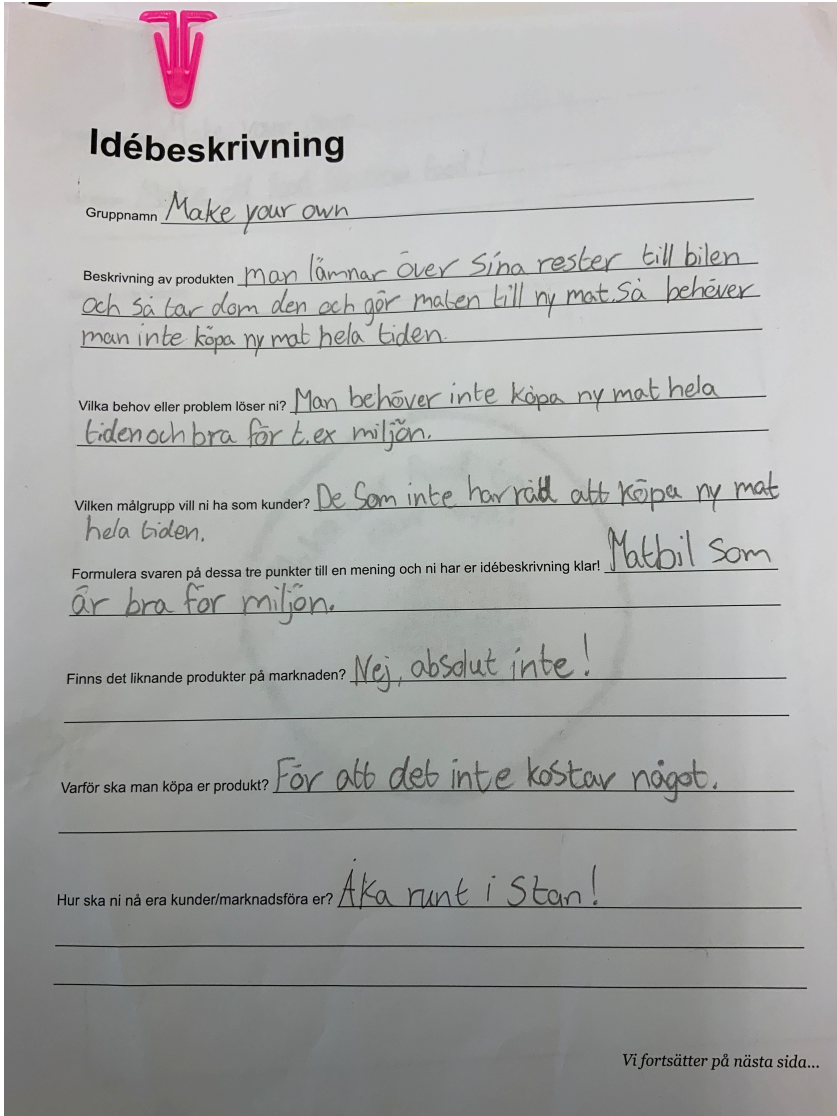 Idébeskrivning
Gruppnamn Make your own
Beskrivning av produkten man lämnar över sina rester till bilen
och så tar dom den och gör maten till ny mat. Så behöver
man inte köpa ny mat hela tiden.
Vilka behov eller problem löser ni? Man behöver inte köpa ny mat hela
tiden och bra för t.ex miljön.
Vilken målgrupp vill ni ha som kunder? De som inte har råd att köpa ny mat
hela tiden.
Formulera svaren på dessa tre punkter till en mening och ni har er idébeskrivning klar! Matbil som
är bra för miljön.
Finns det liknande produkter på marknaden? Nej, absolut inte!
Varför ska man köpa er produkt? För att det inte kostar något.
Hur ska ni nå era kunder/marknadsföra er? Åka runt i stan!
Vi fortsätter på nästa sida...